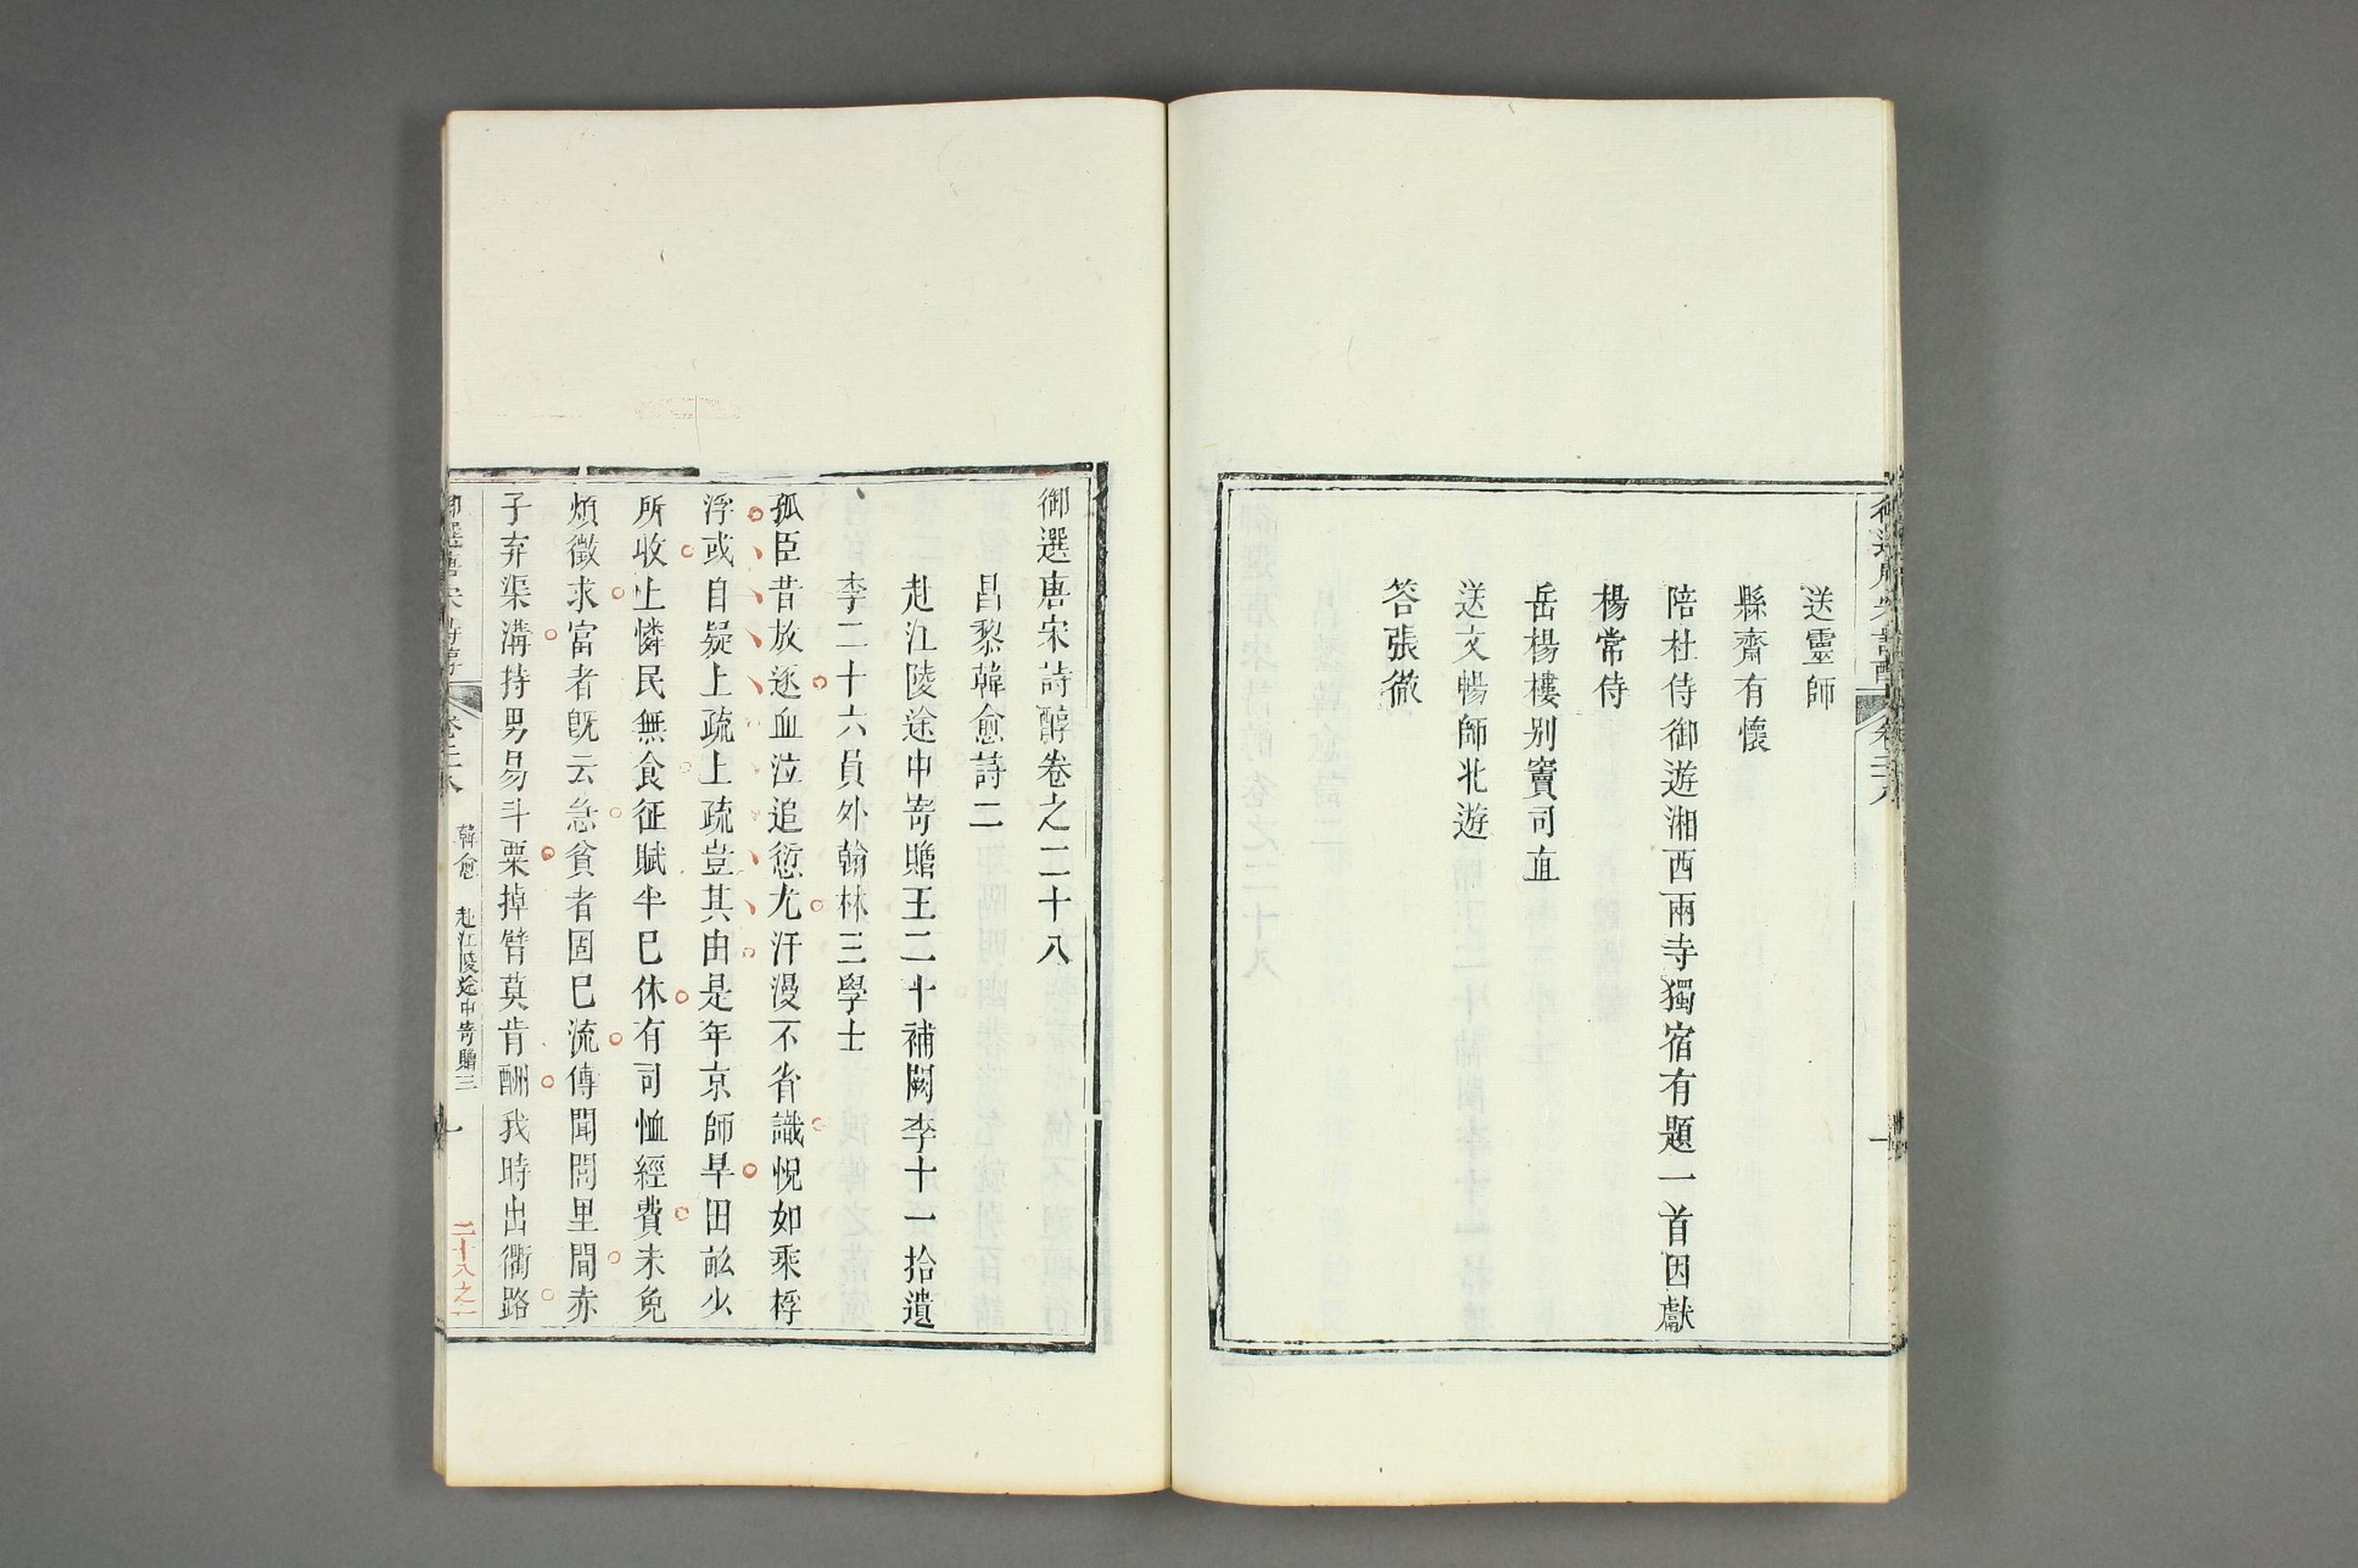 送靈師
縣齋有懷
陪杜侍御遊湘西兩寺獨宿有題一首因獻
楊常侍
岳楊樓别竇司直
送文暢師北遊
答張徹
御選唐宋詩醇卷之二十八
昌黎韓愈詩二
赴江陵途中寄贈王二十補闕李十一拾遺
李二十六員外翰林三學士
孤臣昔放逐血泣追愆尤汗漫不省識怳如乘桴
浮或自疑上疏上疏豈其由是年京師旱田畝少
所收上憐民無食征賦半巳休有司恤經費未免
煩徵求富者旣云急貧者固巳流傳聞閭里間赤
子弃渠溝持男易斗粟掉臂莫肯酬我時出衢路
御選唐宋詩醇 卷二十八 韓愈 赴江陵途中寄贈三 一
二十八之一